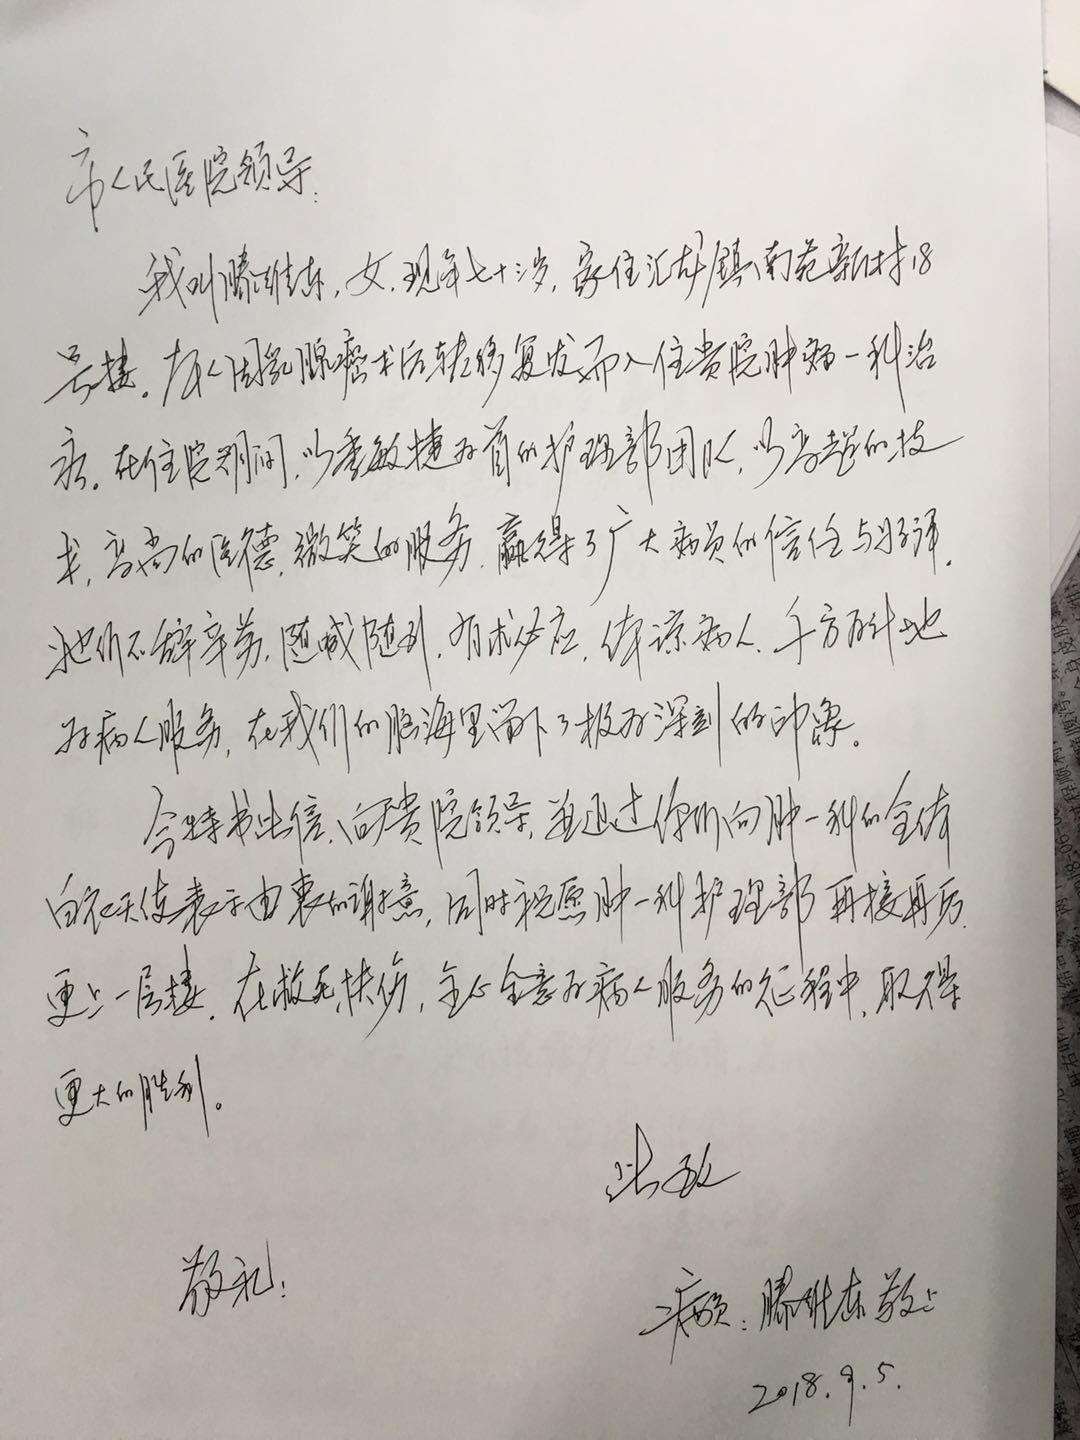 市人民医院领导:
我叫滕维东，女，现年七十三岁，家住汇龙镇南苑新村18
号楼。本人因乳腺癌术后转移复发而入住贵院肿瘤一科治
疗。在住院期间，以季敏捷为首的护理部团队，以高超的技
术，高尚的医德，微笑的服务，赢得了广大病员的信任与好评。
她们不辞辛劳，随喊随到，有求必应，体谅病人，千方百计地
为病人服务，在我们的脑海里留下了极为深刻的印象。
今特书此信，向贵院领导，并通过你们向肿一科的全体
白衣天使表示由衷的谢意，同时祝愿肿一科护理部再接再厉
更上一层楼，在救死扶伤，全心全意为病人服务的征程中，取得
更大的胜利。
此致
敬礼!
病员：滕维东敬上
2018.9.5.